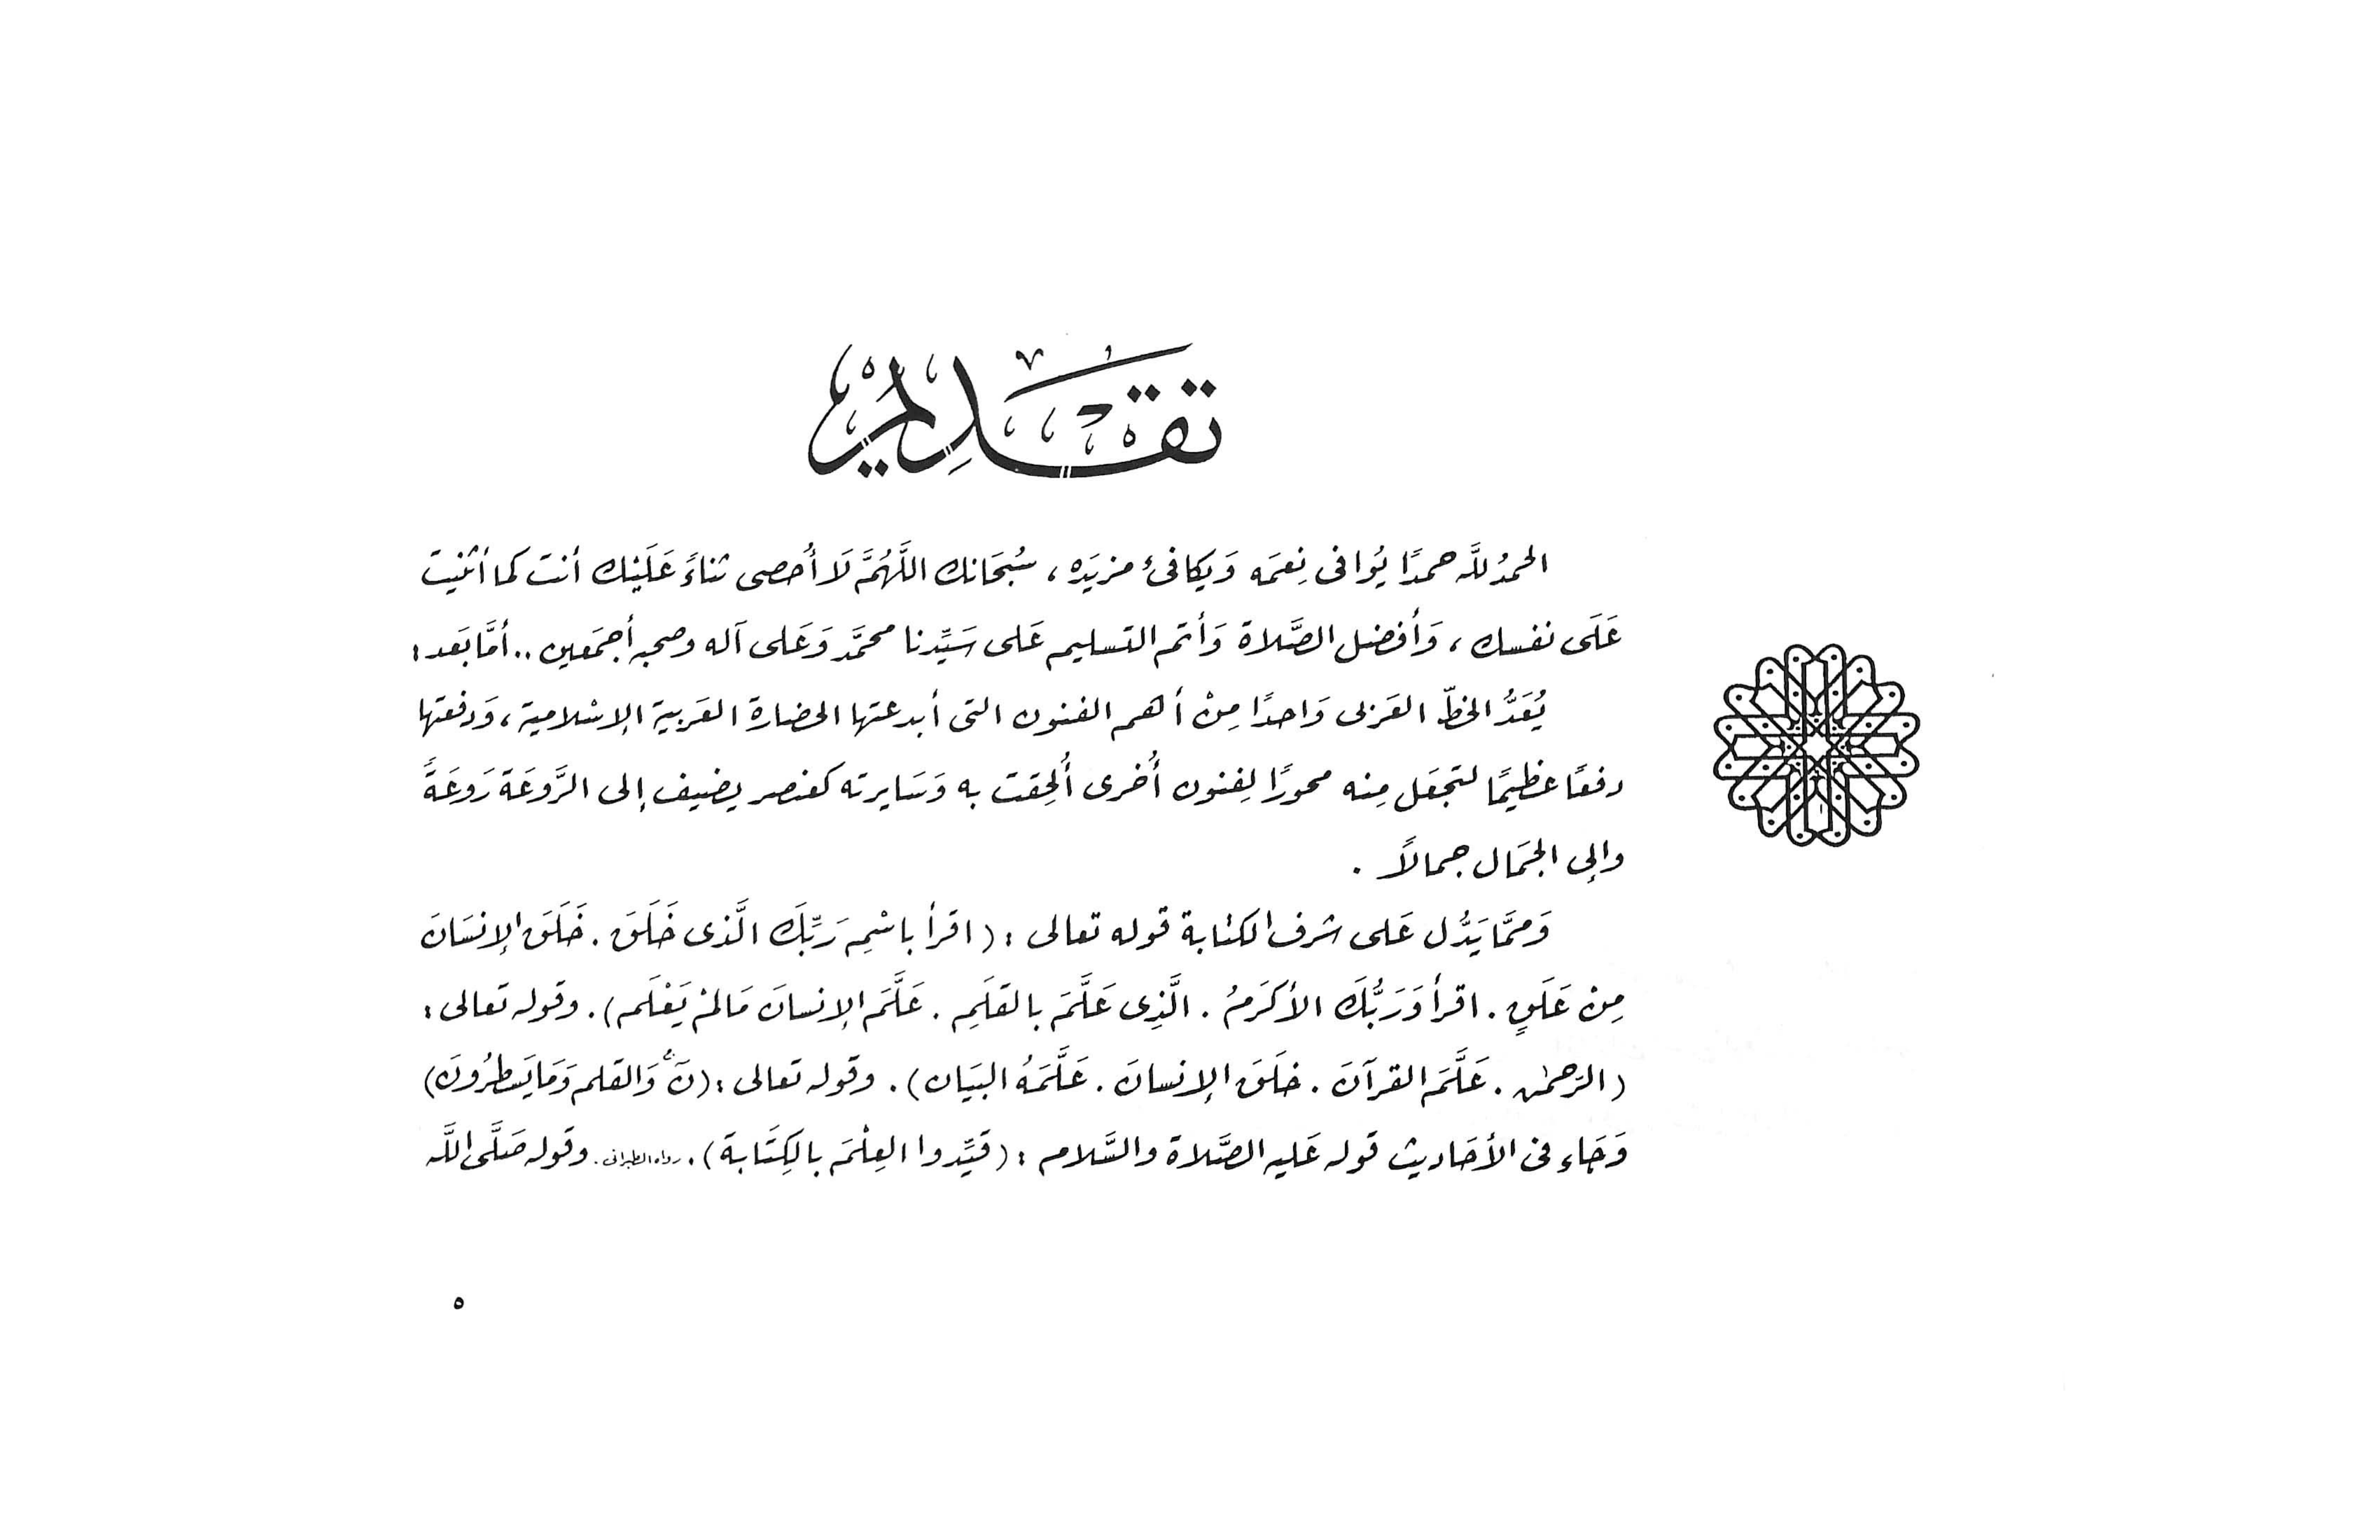 تقديم
الحمدُ للَّه حمدًا يُوافى نِعمَه وَيكافئ مزيَده، سُبحَانك اللَّهُمَّ لَا أُحصى ثناءً عَلَيْك أنت كما أثنيت
عَلَى نفسك، وَأفضل الصَّلاة وَأتم التسليم عَلى سَيِّدنا محمَّد وَعَلى آله وصحبه أجمَعين.. أمَّا بَعد:
يُعَدُّ الخطّ العَربى وَاحدًا مِنْ أهم الفنون التى أبدعتها الحضارة العَربية الإسْلامية، وَدفعتها
دفعًا عظيمًا لتجعَل مِنه محورًا لِفنون أُخرى أُلحِقت به وَسَايرته كعنصر يضيف إلى الرَّوعَة رَوعَةً
وإلى الجمَال جمالاً .
وَممَّا يَدُّل عَلى شرف الكتابة قوله تعالى : (اقرأ باسْمِ رَبِّكَ الَّذى خَلَقَ . خَلَقَ الإنسَانَ
مِنْ عَلَقٍ . اقرأ وَرَبُّكَ الأكرَمُ . الَّذِى عَلَّمَ بالقَلَمِ . عَلَّمَ الإنسانَ مَالمْ يَعْلَم) . وقوله تعالى :
(الرَحمٰن . عَلَّمَ القرآنَ . خلَقَ الإنسانَ . عَلَّمَهُ البيَان) . وقوله تعالى : (نۤ وَالقلم وَمَا يَسطرُونَ)
وَجَاء فى الأحَاديث قوله عَليه الصَّلاة والسَّلام : (قيِّدوا العِلْمَ بالكِتَابة) . رواه الطبرانى . وقوله صَلَّى اللَّه
٥